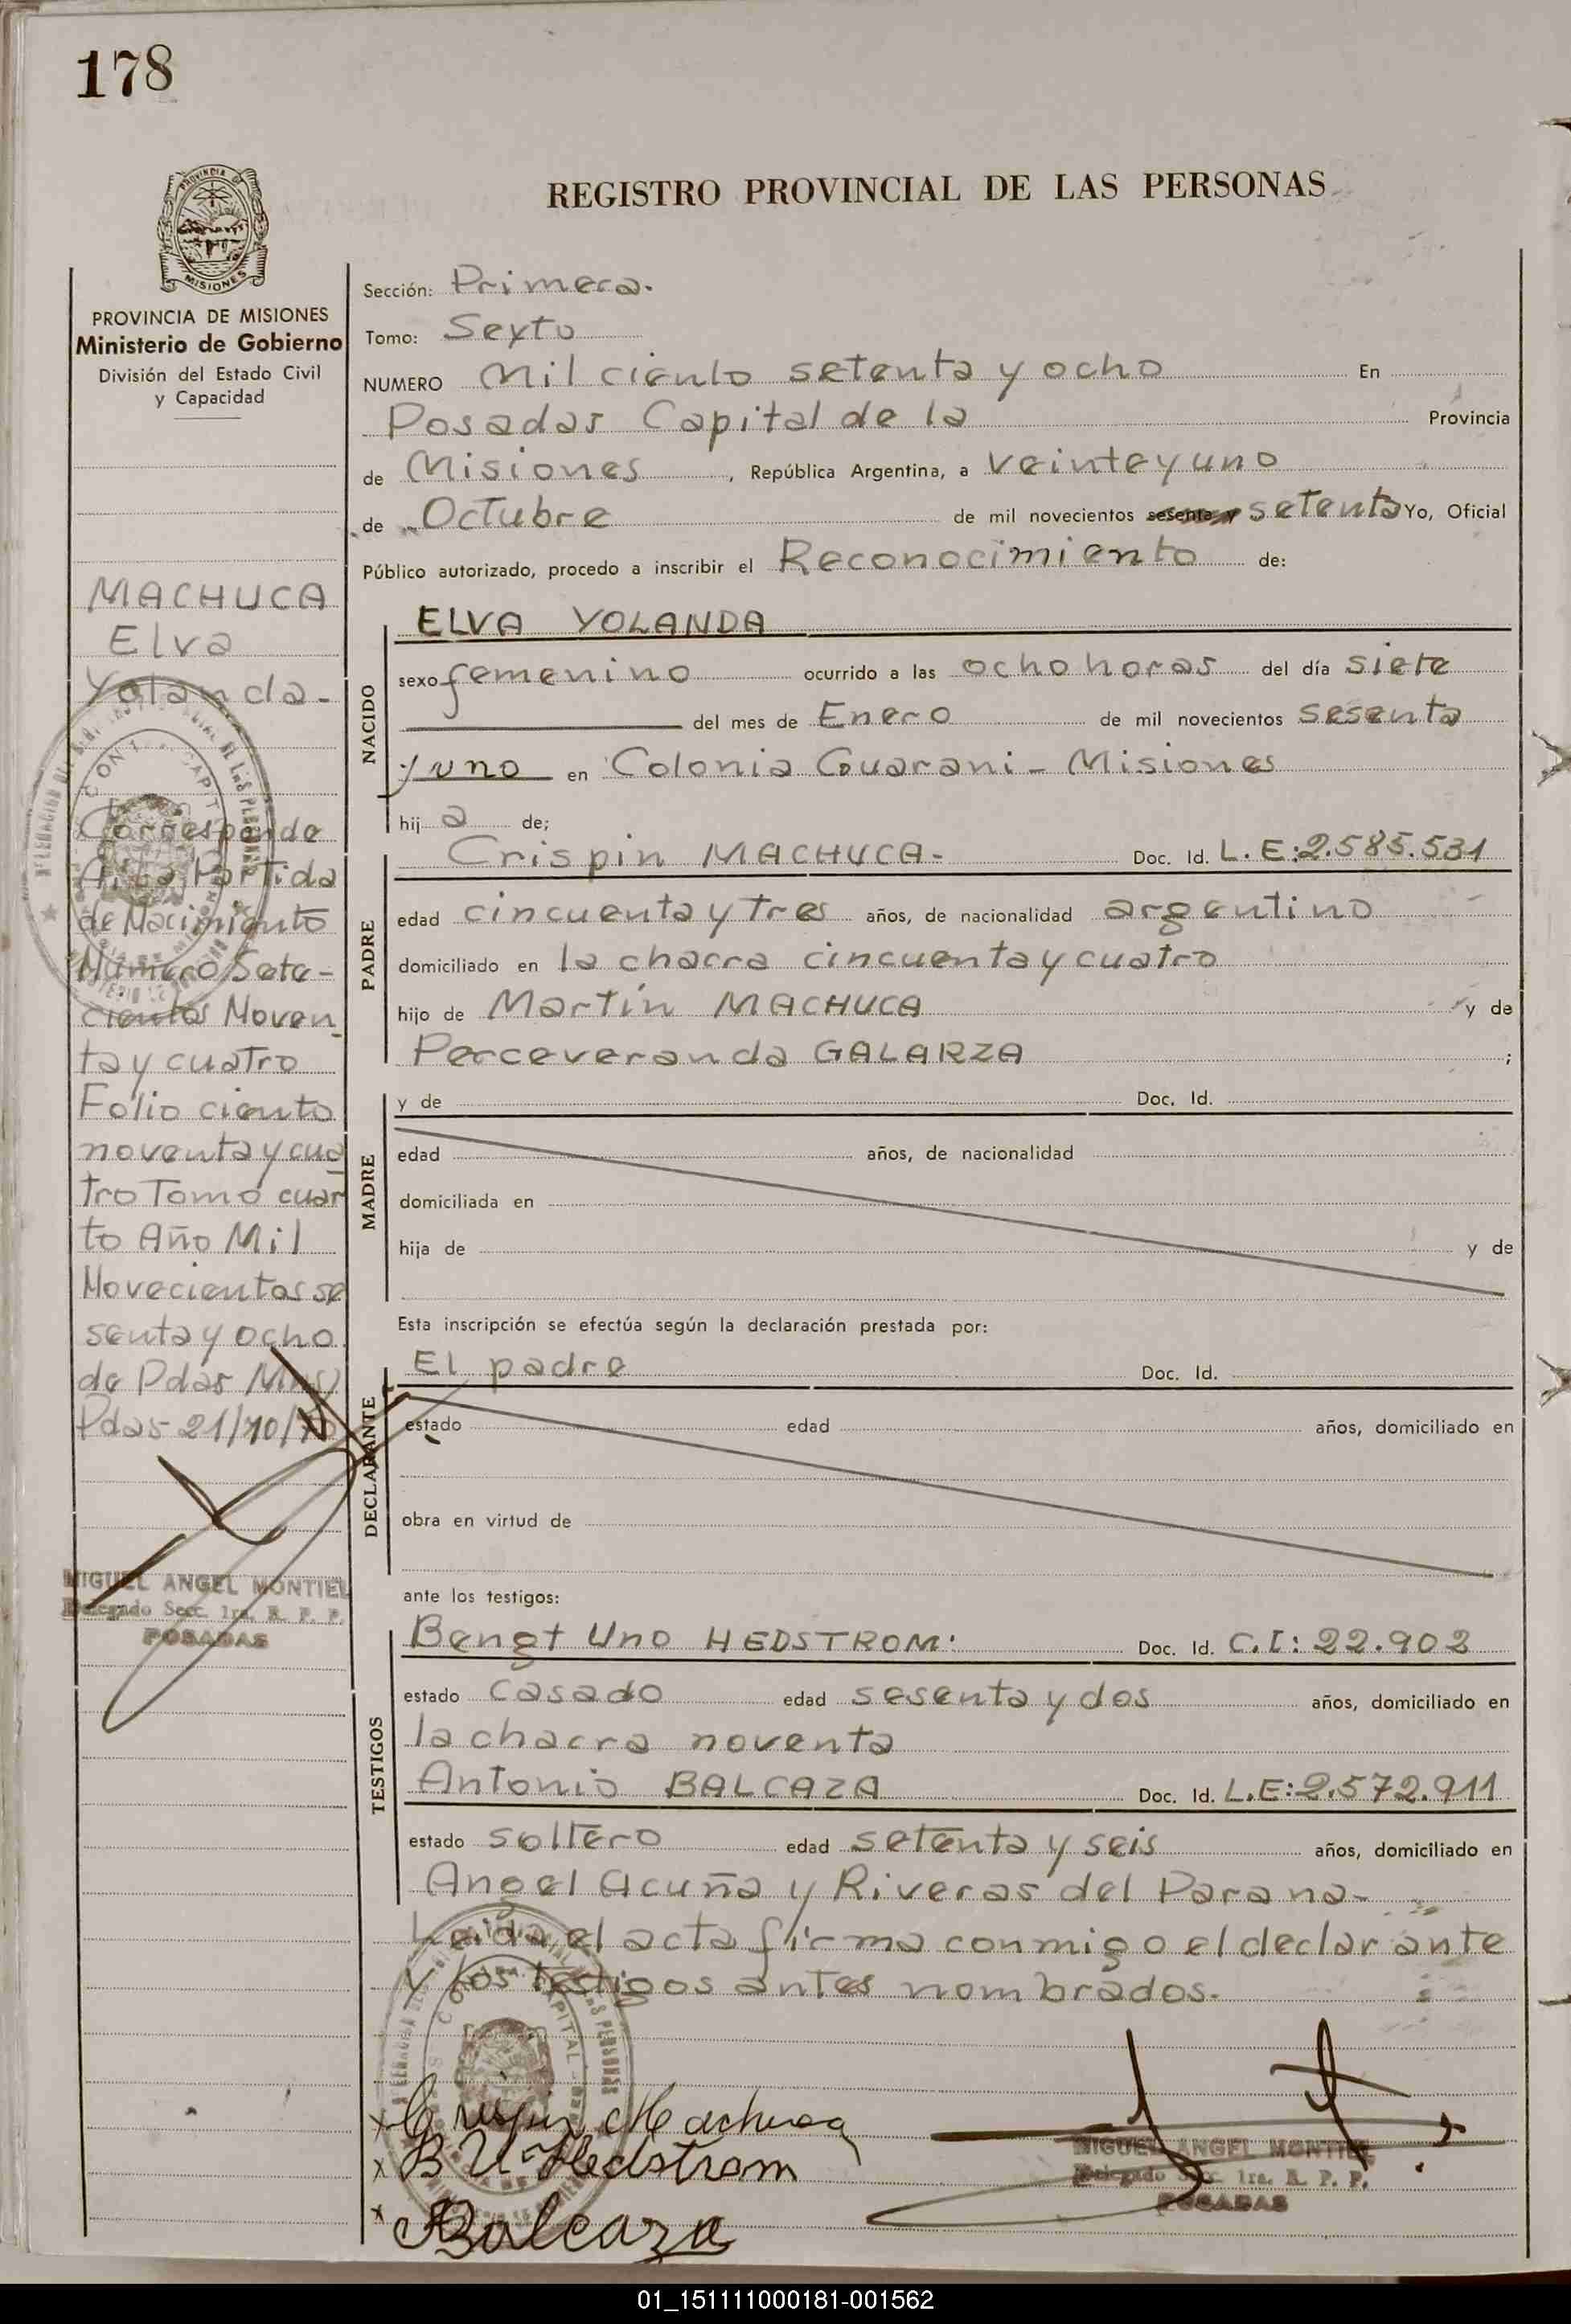 178
REGISTRO PROVINCIAL DE LAS PERSONAS
PROVINCIA DE MISIONES
Ministerio de Gobierno
División del Estado Civil
y Capacidad
MACHUCA
Elva
Yolanda-
Corresponde
A la Partida
de Nacimiento
Número Sete-
cientos Noven
ta y cuatro
Folio ciento
noventa y cua
tro Tomo cuar
to Año Mil
Novecientos se
senta y ocho
de Pdas Mnes
Pdas 21/10/70
MIGUEL ANGEL MONTIEL
Delegado Secc. 1ra. R. P. P.
POSADAS
Sección: Primera.
Tomo: Sexto
NUMERO Mil ciento setenta y ocho En
Posadas Capital de la Provincia
de Misiones, República Argentina, a veinte y uno
de Octubre de mil novecientos sesenta y setenta Yo, Oficial
Público autorizado, procedo a inscribir el Reconocimiento de:
NACIDO
ELVA YOLANDA
sexo femenino ocurrido a las ocho horas del día siete
del mes de Enero de mil novecientos sesenta
y uno en Colonia Guarani - Misiones
hij a de;
PADRE
Crispin MACHUCA- Doc. Id. L.E:2.585.531
edad cincuenta y tres años, de nacionalidad argentino
domiciliado en la chacra cincuenta y cuatro
hijo de Martín MACHUCA y de
Perceveranda GALARZA ;
MADRE
y de Doc. Id.
edad años, de nacionalidad
domiciliada en
hija de y de
Esta inscripción se efectúa según la declaración prestada por:
DECLARANTE
El padre Doc. Id.
estado edad años, domiciliado en
obra en virtud de
ante los testigos:
TESTIGOS
Bengt Uno HEDSTROM. Doc. Id. C.I: 22.902
estado casado edad sesenta y dos años, domiciliado en
la chacra noventa
Antonio BALCAZA Doc. Id. L.E:2.572.911
estado soltero edad setenta y seis años, domiciliado en
Angel Acuña y Riveras del Parana-
Leida el acta firma conmigo el declarante
y los testigos antes nombrados.
x Crispin Machuca
x B U Hedstrom
x Balcaza
MIGUEL ANGEL MONTIEL
Delegado Secc. 1ra. R. P. P.
POSADAS
01_151111000181-001562